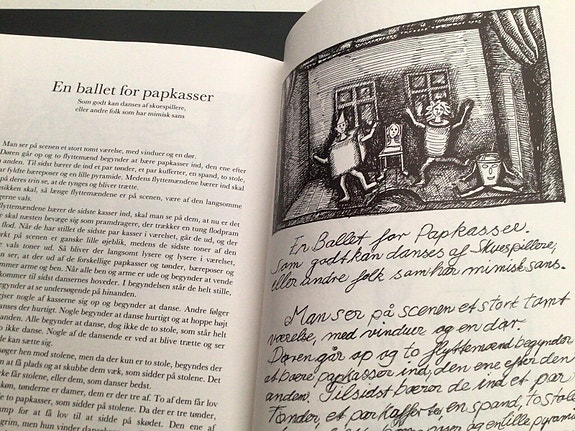 En ballet for papkasser
Som godt kan danses af skuespillere,
eller andre folk som har mimisk sans
Man ser på scenen et stort tomt værelse, med vinduer og en dør.
Døren går op og to flyttemænd begynder at bære papkasser ind, den ene efter
anden. Til sidst bærer de ind et par tønder, et par kufferter, en spand, to stole,
ar fyldte bæreposer og en lille pyramide. Medens flyttemændene bærer ind skal
på deres trin se, at de tynges og bliver trætte.
sikken skal, så længe flyttemændene er på scenen, være af den langsomme
gerne vals.
flyttemændene bærer de sidste kasser ind, skal man se på dem, at nu er de
de skal næsten bevæge sig som pramdragere, der trækker en tung flodpram
flod. Når de har stillet de sidste par kasser i værelset, går de ud, og der
på scenen et ganske lille øjeblik, medens de sidste toner af den
vals toner ud. Så bliver der langsomt lysere og lysere i værelset,
ser, at der ud af de forskellige papkasser og tønder, bæreposer og
ommer arme og ben. Når alle ben og arme er ude og begynder at vende
kommer til sidst dansernes hoveder. I begyndelsen står de helt stille,
egynder at se undersøgende på hinanden.
ejser nogle af kasserne sig op og begynder at danse. Andre følger
danses der hurtigt. Nogle begynder at danse hurtigt og at hoppe højt
tønderne. Alle begynder at danse, dog ikke de to stole, som står helt
o ikke danse. Nogle af de dansende er ved at blive trætte og ser
kan sætte sig.
søger hen mod stolene, men da der kun er to stole, begyndes der
at få plads og at skubbe dem væk, som sidder på stolene. Det
ke får stolene, eller dem, som danser bedst.
køn, tønderne er damer, dem er der tre af. To af dem får lov
to papkasser, som sidder på stolene. Da der er tre tønder,
amp for at få lov til at sidde på skødet. Den ene af
grim, men hun vinder dansen
En Ballet for Papkasser.
Som godt kan danses af Skuespillere,
eller andre folk som har mimisk sans.
Man ser på scenen et stort tomt
værelse, med vinduer og en dør.
Døren går op og to flyttemænd begynder
at bære papkasser ind, den ene efter den
anden. Tilsidst bærer de ind et par
Tønder, et par kufferter, en spand, to stole
poser og en lille pyramide